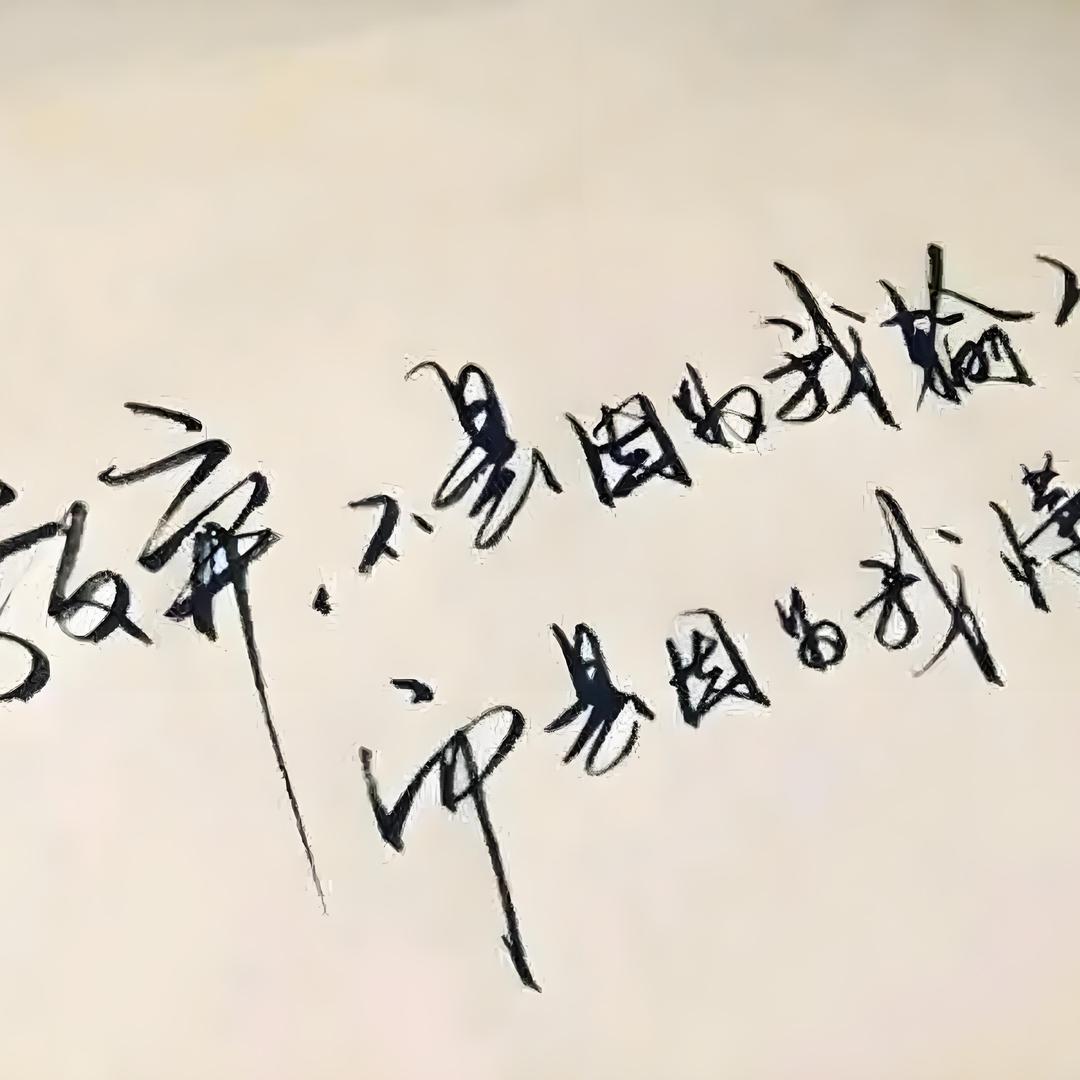 放弃.不是因为我输不
而是因为我懂